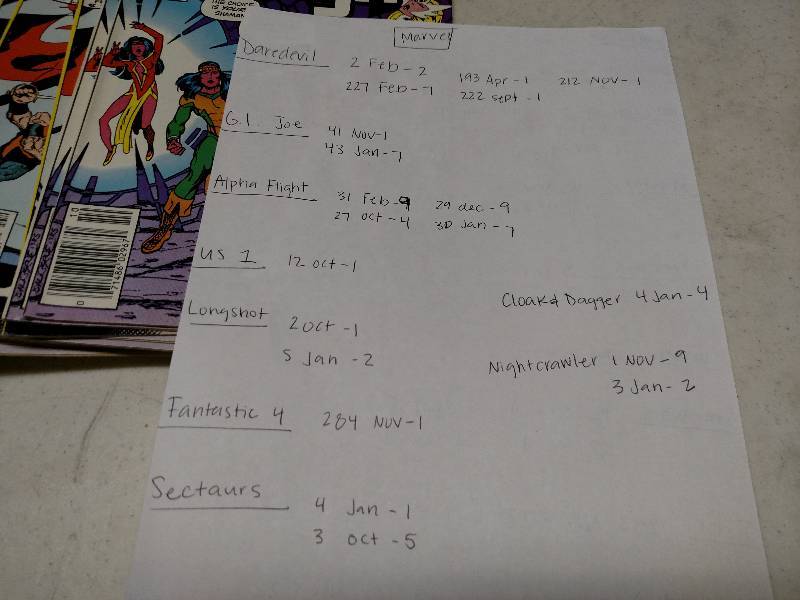 THE CHOICE
IS YOURS,
SHAMAN
Marvel
Daredevil 2 Feb-2 193 Apr-1 212 NOV-1
227 Feb-7 222 sept-1
G.I. Joe 41 NOV-1
43 Jan-7
Alpha Flight 31 Feb-9 29 dec-9
27 oct-4 30 Jan-7
US 1 12 oct-1
Cloak & Dagger 4 Jan-4
Longshot 2 oct-1
5 Jan-2
Nightcrawler 1 NOV-9
3 Jan-2
Fantastic 4 284 NOV-1
Sectaurs
4 Jan-1
3 oct-5
10
0 71486 02967